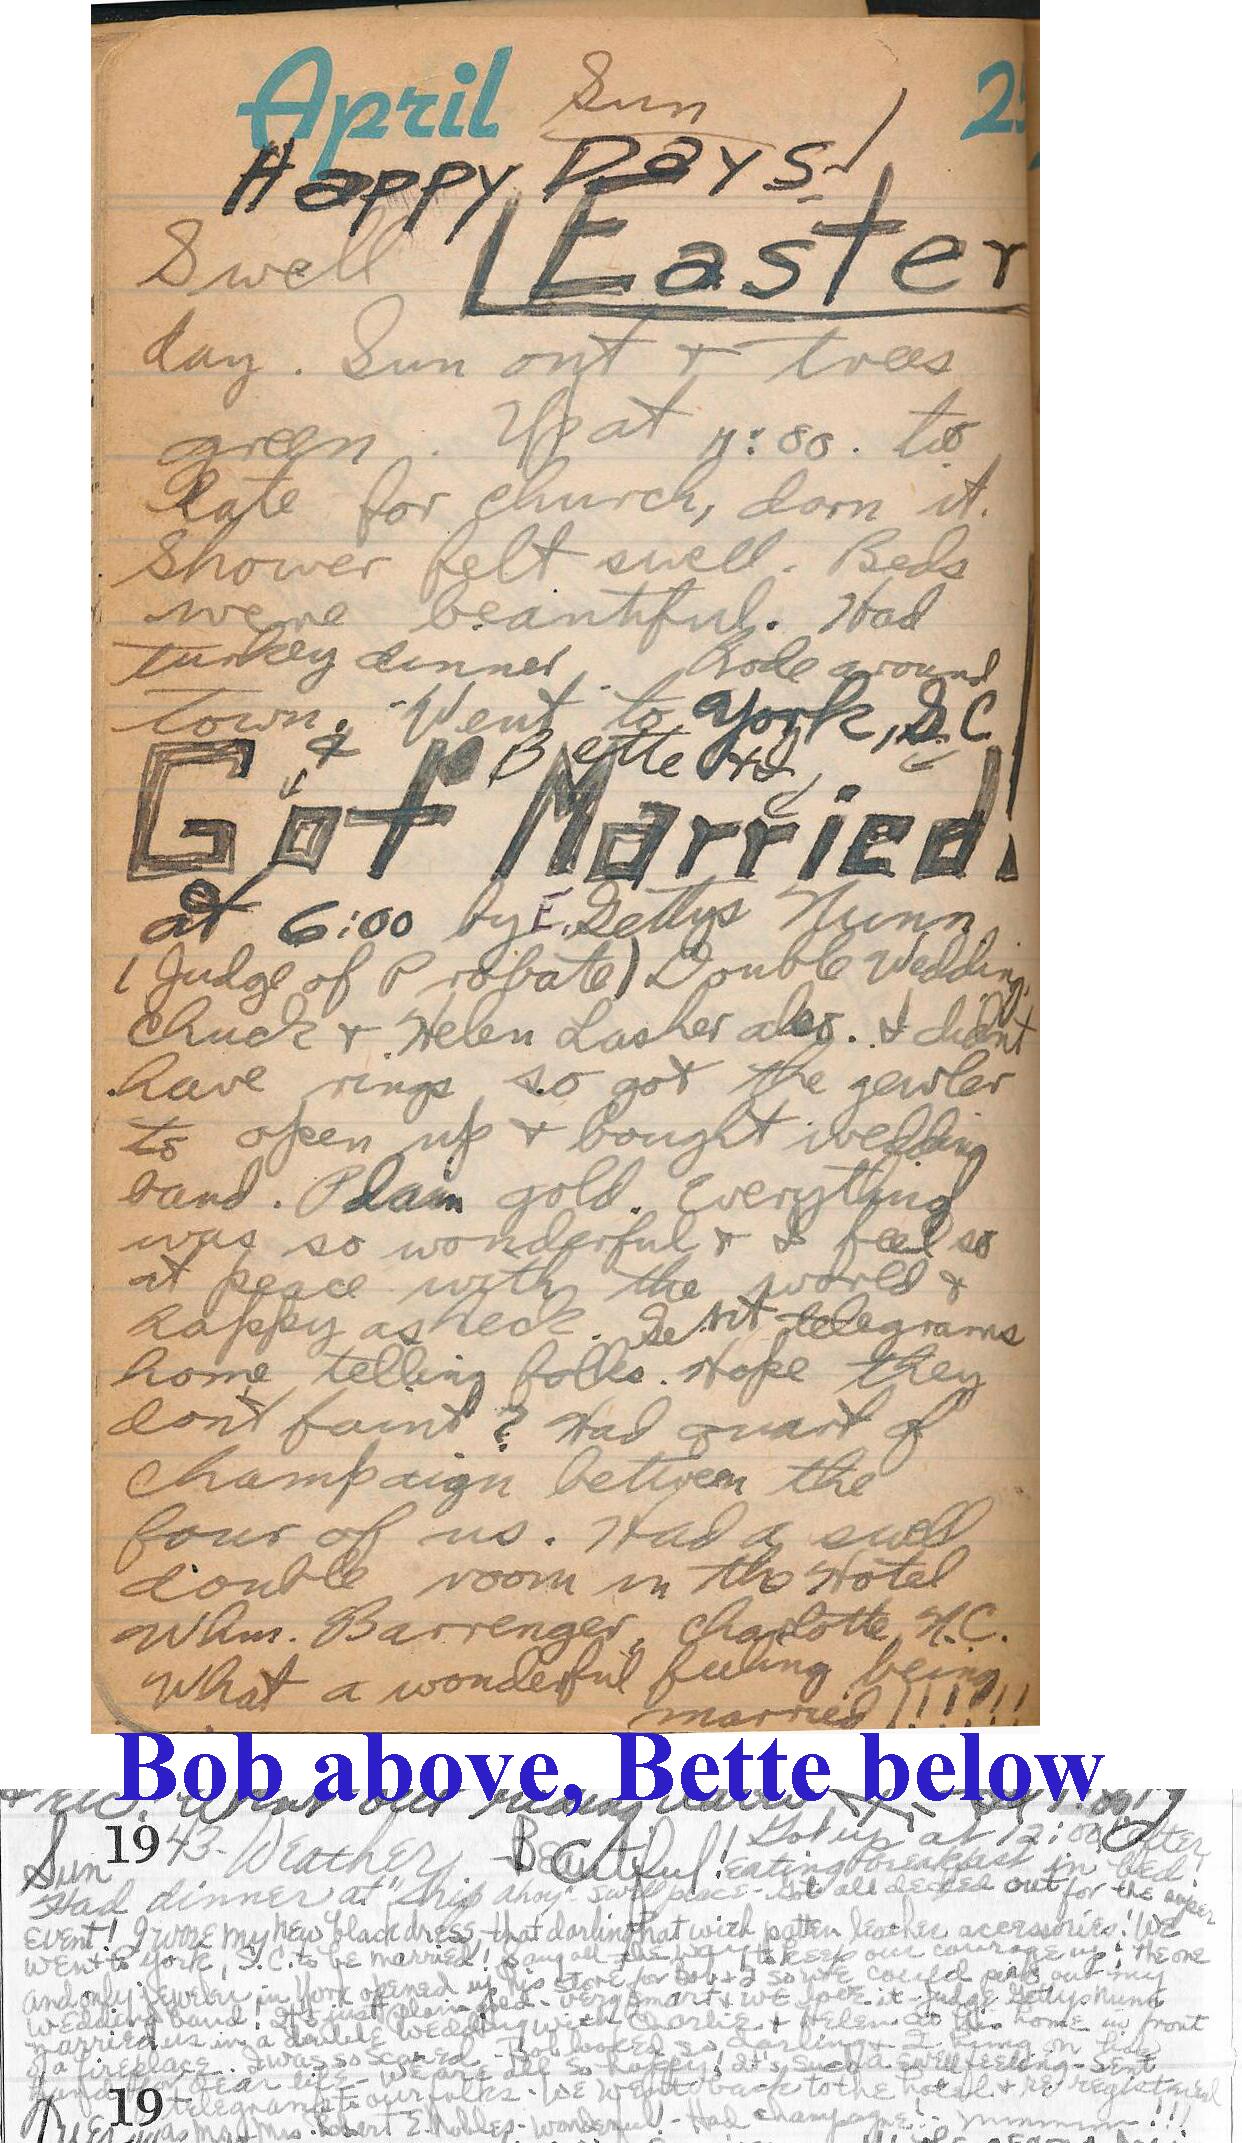 April Sun 25
Happy Days!
Easter
Swell
day. Sun out + trees
green. Up at 11:80. to
late for church, darn it.
Shower felt swell. Beds
were beautiful. Had
turkey dinner. Rode around
town. Went to York, S.C.
+ Bette + I
Got Married!
at 6:00 by E. Gettys Nunn
(Judge of Probate) Double Wedding,
Chuck + Helen Lasher also. I didn't
have rings so got the jewler
to open up + bought wedding
band. Plain gold. Everything
was so wonderful + I feel so
at peace with the world +
happy as heck. Sent telegrams
home telling folks. Hope they
dont faint? Had quart of
champaign between the
four of us. Had a swell
double room in the Hotel
Whm. Barrenger, Charlotte, N.C.
What a wonderful feeling being
married !!!!!!!
Bob above, Bette below
Went out riding
Sun 1943- Weather, Beautiful! Got up at 12:00, after
eating breakfast in bed!
Had dinner at "Ship Ahoy" swell place - Got all decked out for the super
event! I wore my new black dress, that darling hat with patten leather accessories! We
went to York, S.C. to be married! Sang all the way to keep our courage up! The one
and only jeweler in York opened up his store for Bob + I so we could pick out my
wedding band! It's just plain gold - very smart + we love it - Judge Gettys Nunn
married us in a double wedding with Charlie + Helen in his home in front
of a fireplace. I was so scared - Bob looked so darling + I hung on his
hand for dear life - We are all so happy! It's such a swell feeling - Sent
telegrams to our folks - We went back to the hotel + re-registered
19 as Mr + Mrs. Robert E. Nobles - Wonderful! - Had champagne! - mmmmm!!!